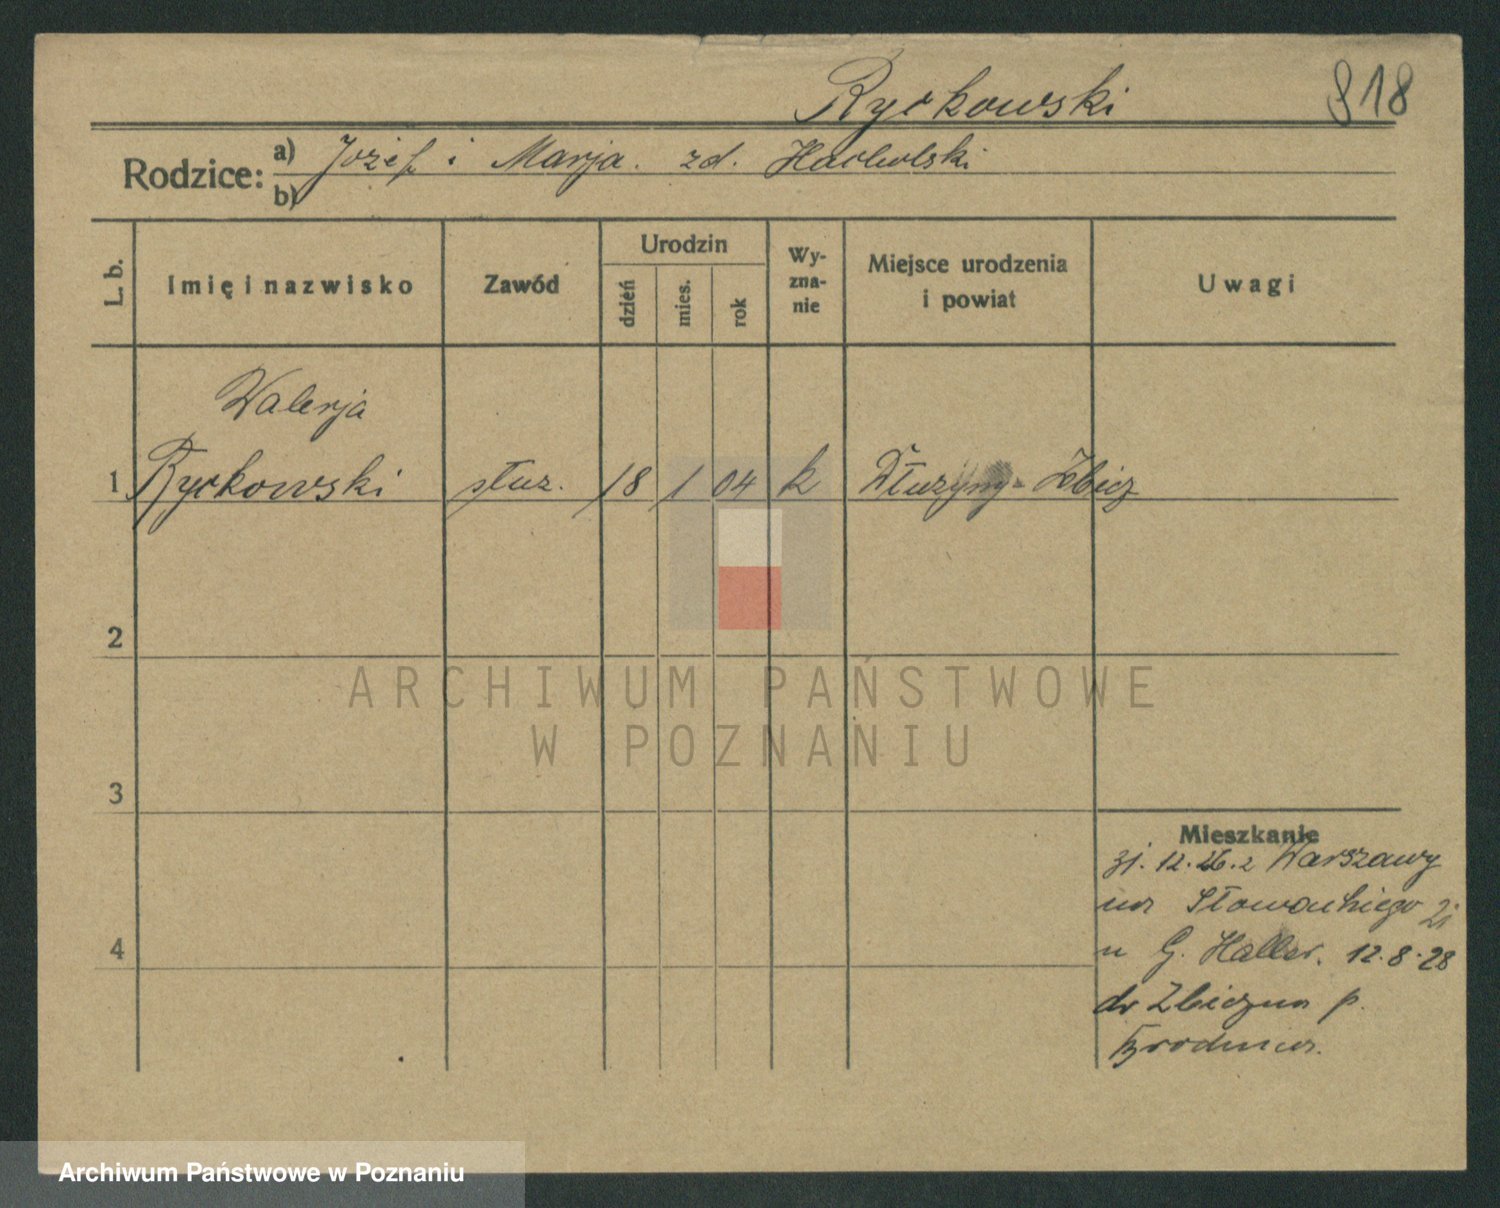 Ryckowski 818
Rodzice: a) Józef i Marja. zd.
b)
L. b. Imię i nazwisko Zawód Urodzin dzień mies. rok Wy-zna-nie Miejsce urodzenia i powiat Uwagi
Walerja
1 Ryckowski służ. 18 1 04 k Dłużyny-
2
3
4
Mieszkanie
zj. 12.26. z Warszawy
na Słowackiego 21
u G. Haller. 12.8.28
do Zbiczna p.
Brodnica.
ARCHIWUM PAŃSTWOWE
W POZNANIU
Archiwum Państwowe w Poznaniu